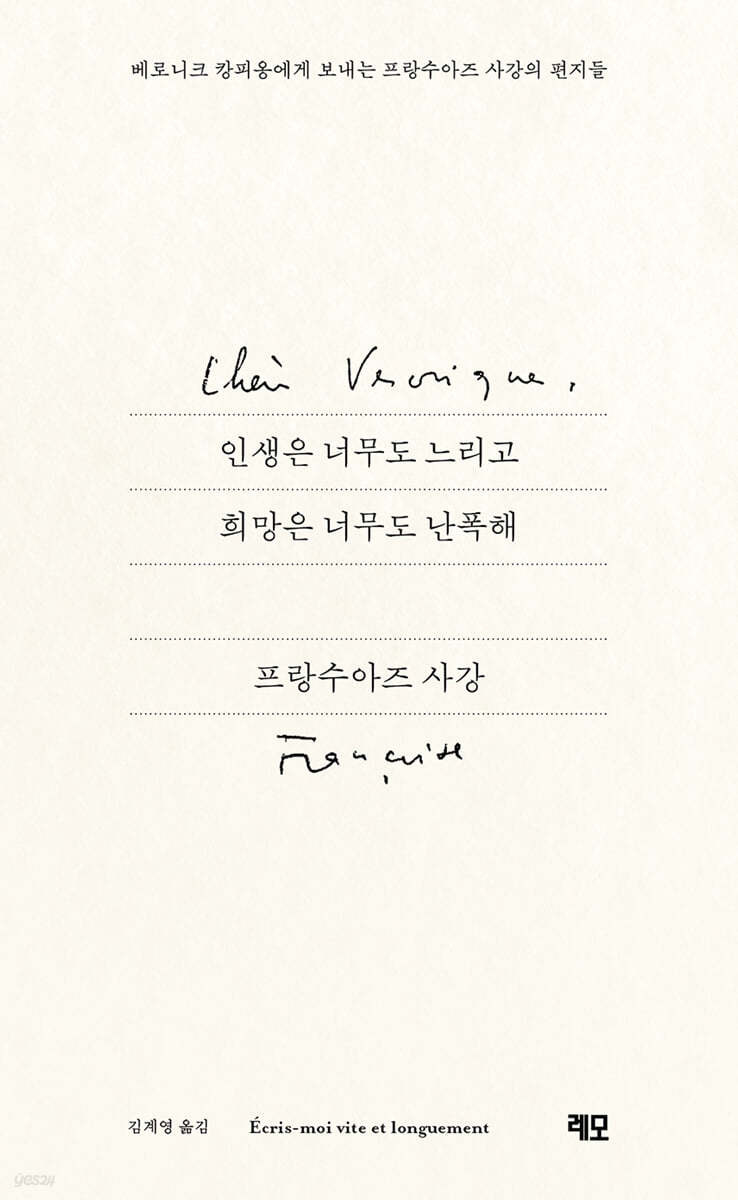 베로니크 캉피옹에게 보내는 프랑수아즈 사강의 편지들
Chère Véronique,
인생은 너무도 느리고
희망은 너무도 난폭해
프랑수아즈 사강
Françoise
김계영 옮김 Écris-moi vite et longuement 레모
yes24